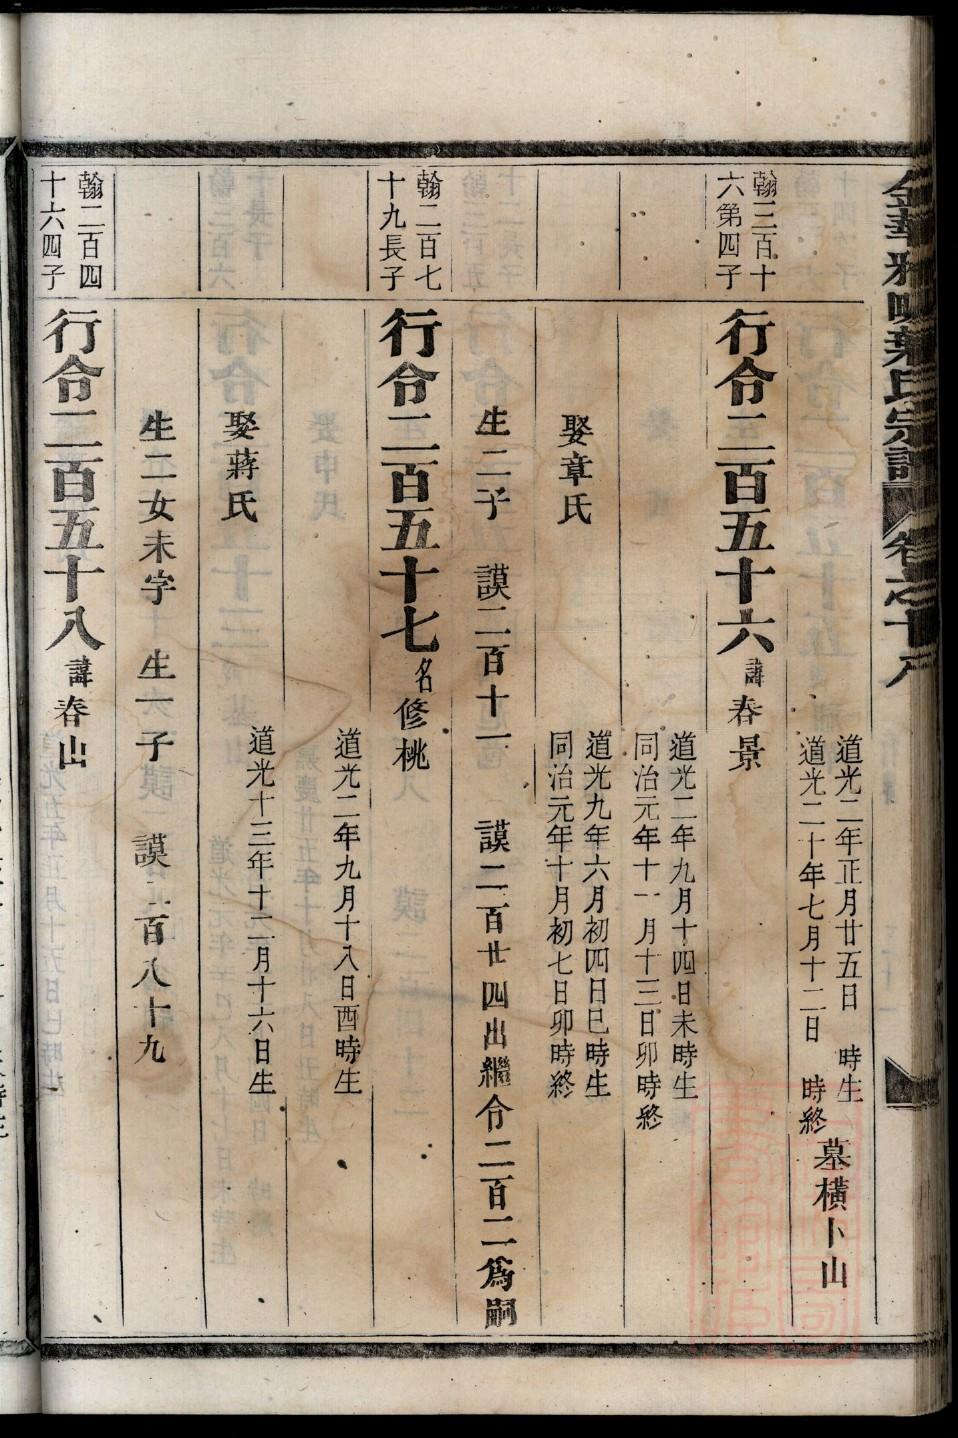 金華雅畈葉氏宗譜 卷之十八
道光二年正月廿五日 時生
道光二十年七月十二日 時終
墓橫卜山
翰三百十
六第四子
行令二百五十六 諱春景
道光二年九月十四日未時生
同治元年十一月十三日卯時終
娶章氏
道光九年六月初四日巳時生
同治元年十月初七日卯時終
生二子 謨二百十一 謨二百廿四出繼令二百二為嗣
翰二百七
十九長子
行令二百五十七 名修桃
道光二年九月十八日酉時生
娶蔣氏
道光十三年十二月十六日生
生二女未字 生一子 謨二百八十九
翰二百四
十六四子
行令二百五十八 諱春山